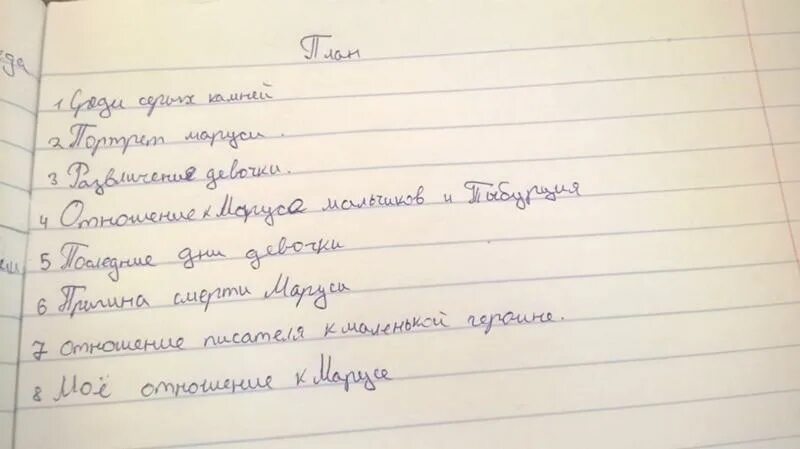 План
1 Среди серых камней
2 Портрет маруси.
3 Развлечение девочки.
4 Отношение к Маруса мальчиков и Тыбурция
5 Последние дни девочки
6 Причина смерти Маруси
7 отношение писателя к маленькой героине.
8 Моё отношение к Марусе